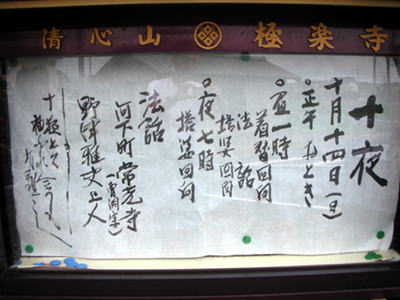 清心山 極楽寺
十夜
十月十四日(日)
○正午 おとき
○昼一時
着替回向
法話
塔婆回向
○夜七時
塔婆回向
法話
河下町 常光寺
野津雅史上人
十夜とは